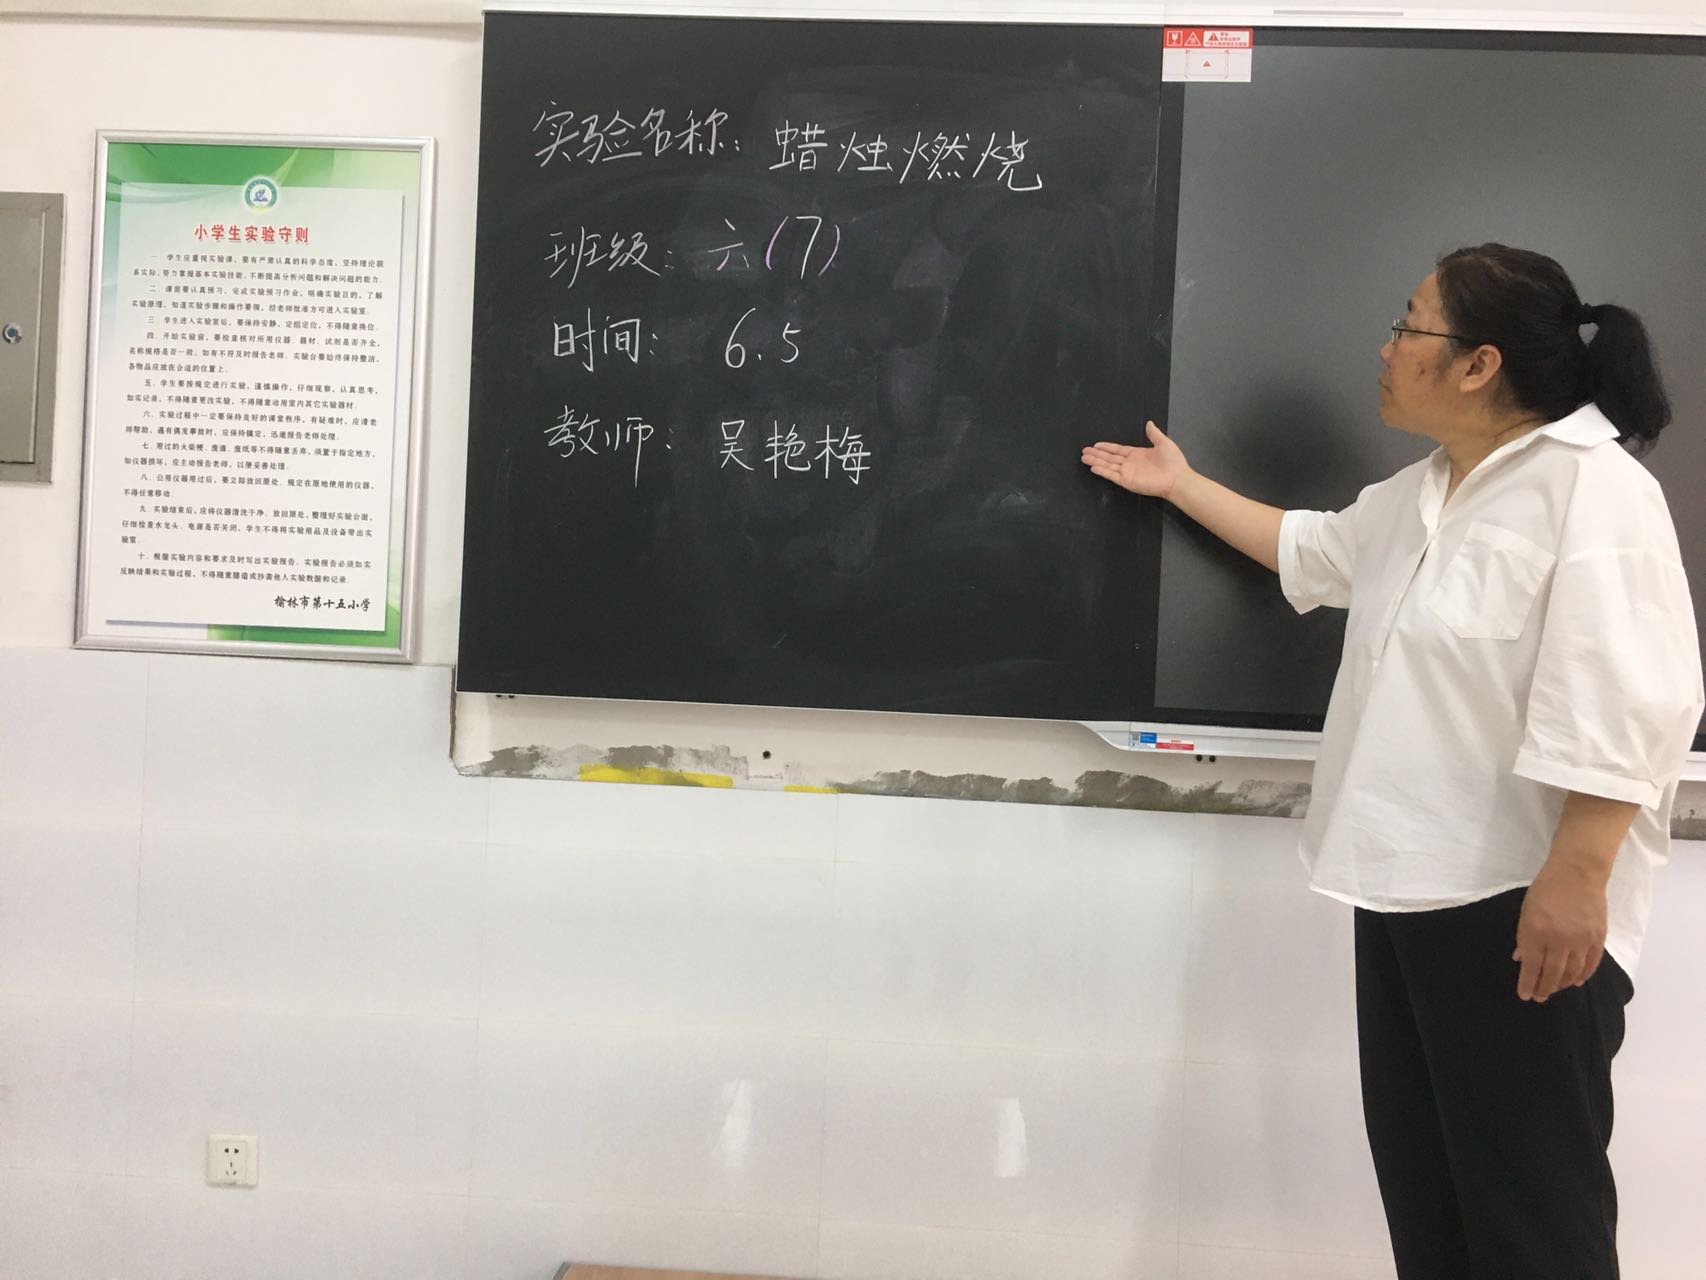 小学生实验守则
一、学生应重视实验课，要有严肃认真的科学态度，坚持理论联
系实际，努力掌握基本实验技能，不断提高分析问题和解决问题的能力。
二、课前要认真预习，完成实验预习作业，明确实验目的，了解
实验原理，知道实验步骤和操作要领，经老师批准方可进入实验室。
三、学生进入实验室后，要保持安静，定组定位，不得随意换位。
四、开始实验前，要检查核对所用仪器、器材、试剂是否齐全，
名称规格是否一致，如有不符及时报告老师。实验台要始终保持整洁，
各物品应放在合适的位置上。
五、学生要按规定进行实验，谨慎操作，仔细观察，认真思考，
如实记录，不得随意更改实验，不得随意动用室内其它实验器材。
六、实验过程中一定要保持良好的课堂秩序，有疑难时，应请老
师帮助，遇有偶发事故时，应保持镇定，迅速报告老师处理。
七、用过的火柴梗、废渣、废纸等不得随意丢弃，须置于指定地方，
如仪器损坏，应主动报告老师，以便妥善处理。
八、公用仪器用过后，要立即放回原处。规定在原地使用的仪器，
不得任意移动。
九、实验结束后，应将仪器清洗干净、放回原处，整理好实验台面，
仔细检查水龙头、电源是否关闭，学生不得将实验用品及设备带出实
验室。
十、根据实验内容和要求及时写出实验报告。实验报告必须如实
反映结果和实验过程，不得随意臆造或抄袭他人实验数据和记录。
榆林市第十五小学
实验名称：蜡烛燃烧
班级：六(7)
时间：6.5
教师：吴艳梅